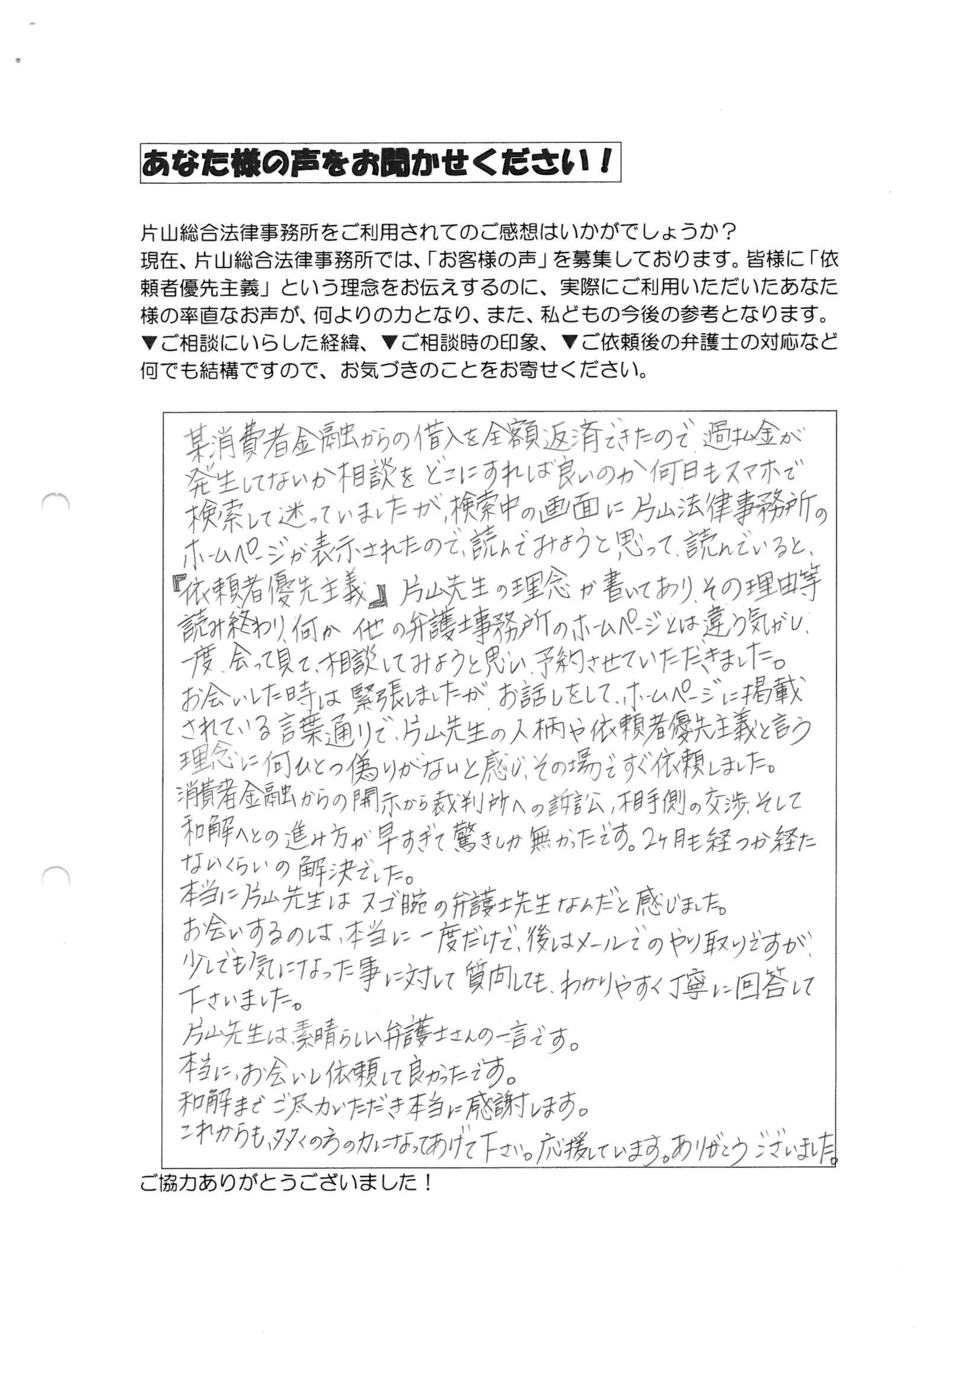 あなた様の声をお聞かせください！
片山総合法律事務所をご利用されてのご感想はいかがでしょうか？
現在、片山総合法律事務所では、「お客様の声」を募集しております。皆様に「依
頼者優先主義」という理念をお伝えするのに、実際にご利用いただいたあなた
様の率直なお声が、何よりの力となり、また、私どもの今後の参考となります。
▼ご相談にいらした経緯、▼ご相談時の印象、▼ご依頼後の弁護士の対応など
何でも結構ですので、お気づきのことをお寄せください。
某消費者金融からの借入を全額返済できたので、過払金が
発生してないか相談をどこにすれば良いのか何日もスマホで
検索して迷っていましたが、検索中の画面に片山法律事務所の
ホームページが表示されたので、読んでみようと思って、読んでいると、
『依頼者優先主義』片山先生の理念が書いてあり、その理由等
読み終わり、何か他の弁護士事務所のホームページとは違う気がし、
一度、会って見て、相談してみようと思い、予約させていただきました。
お会いした時は緊張しましたが、お話しをして、ホームページに掲載
されている言葉通りで、片山先生の人柄や依頼者優先主義と言う
理念に何ひとつ偽りがないと感じ、その場ですぐ依頼しました。
消費者金融からの開示から裁判所への訴訟、相手側の交渉、そして
和解へとの進み方が早すぎて驚きしか無かったです。2ヶ月も経つか経た
ないくらいの解決でした。
本当に片山先生はスゴ腕の弁護士先生なんだと感じました。
お会いするのは、本当に一度だけで、後はメールでのやり取りですが、
少しでも気になった事に対して質向しても、わかりやすく丁寧に回答して
下さいました。
片山先生は、素晴らしい弁護士さんの一言です。
本当に、お会いし依頼して良かったです。
和解までご尽力いただき本当に感謝します。
これからも、多くの方の力になってあげて下さい。応援しています。ありがとうございました。
ご協力ありがとうございました！